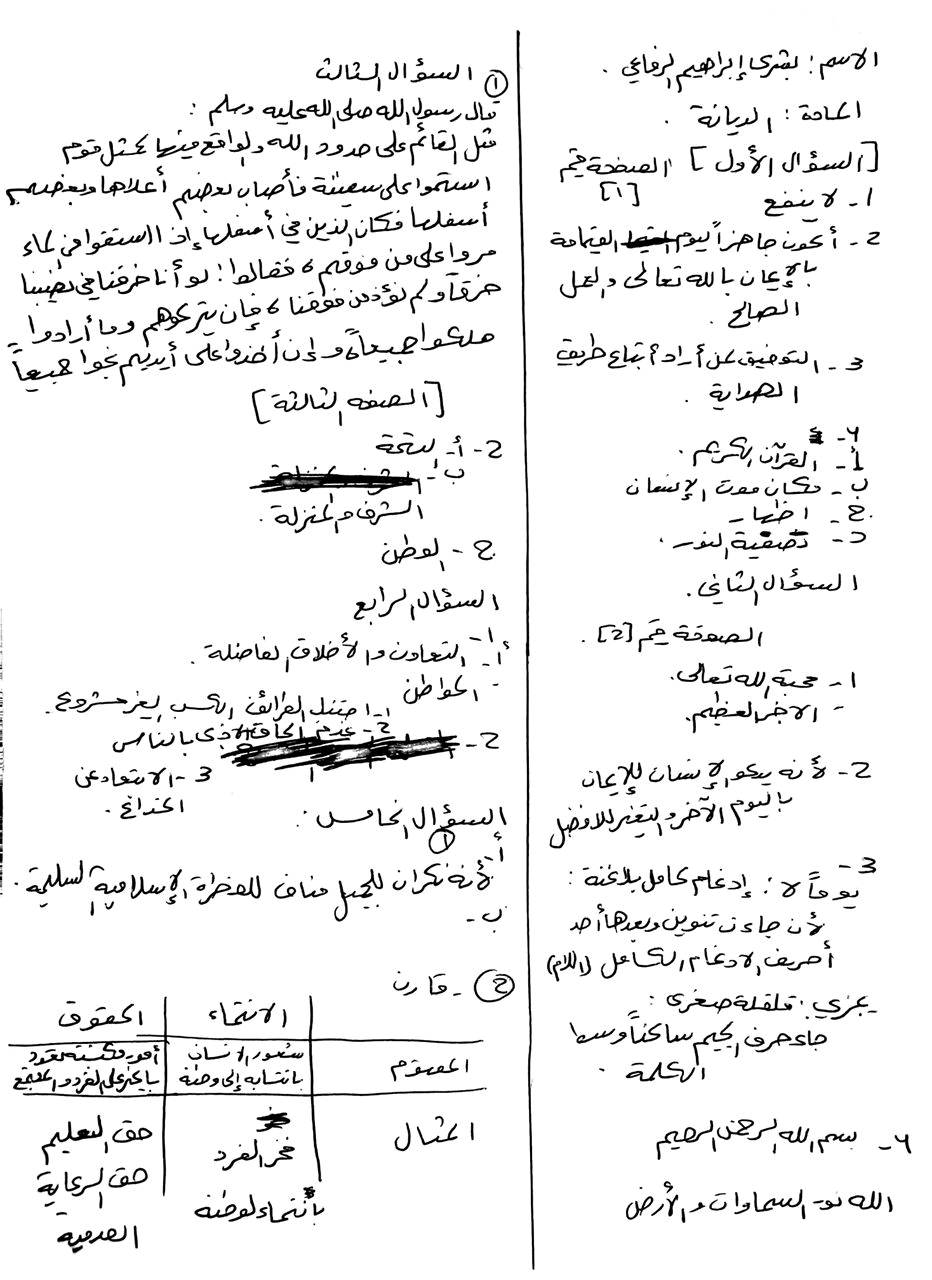 الاسم: بشرى إبراهيم الرفاعي .
المادة: الديانة .
[السؤال الأول] الصفحة رقم
[١]
1- لا ينفع
2- أكون جاهزاً ليوم القيامة
بالإيمان بالله تعالى والعمل
الصالح .
3- التوفيق لمن أراد اتباع طريق
الهداية .
٤-
أ- القرآن الكريم .
ب- مكان موت الإنسان
ج- اظهار
د- تصفية النور .
السؤال الثاني .
الصفحة رقم [2] .
1- محبة الله تعالى .
- الأجر العظيم .
2- لأنه يدعو الإنسان للإيمان
باليوم الآخر والتغير للافضل
3-
يوماً لا : إدغام كامل بلا غنة :
لأن جاءت تنوين وبعدها أحد
أحرف الادغام الكامل (اللام)
يجزي : قلقلة صغرى :
جاء حرف الجيم ساكناً وسط
الكلمة .
٤- بسم الله الرحمن الرحيم
الله نور السماوات والأرض
السؤال الثالث
①
قال رسول الله صلى الله عليه وسلم :
مثل القائم على حدود الله والواقع فيها كمثل قوم
استهموا على سفينة فأصاب بعضهم أعلاها وبعضهم
أسفلها فكان الذين في أسفلها إذا استقوا في الماء
مروا على من فوقهم ، فقالوا : لو أنا خرقنا في نصيبنا
خرقاً ولم نؤذ من فوقنا ، فإن يتركوهم وما أرادوا
هلكوا جميعاً ، وإن أخذوا على أيديهم نجوا جميعاً
[الصفه الثالثة]
2- أ-
ب-
الشرف والمنزلة .
ج- الوطن
السؤال الرابع
1-
أ- التعاون والأخلاق الفاضلة .
- المواطن
2- 1- اجتناب الكسب الغير مشروع .
2- عدم الحاق الأذى بالناس
3- الابتعاد عن
الخداع .
السؤال الخامس :
①
أ-
لأنه نكران للجميل مناف للفطرة الإسلامية السليمة .
ب-
② - قارن
الانتماء الحقوق
المفهوم شعور الانسان أمور
بانتسابه إلى وطنه على الفرد والمجتمع
المثال فخر الفرد حق التعليم
بانتماء لوطنه حق الرعاية
الصحية